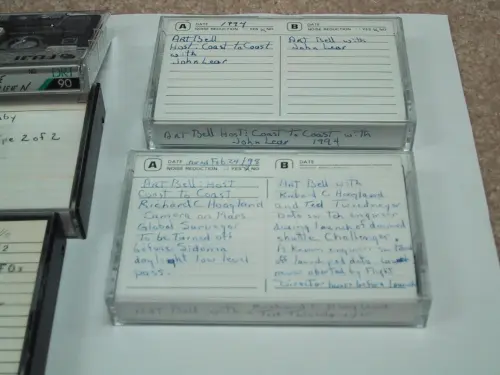 FUJI
DR-I
90
pe 2 of 2
A DATE 1994
NOISE REDUCTION YES NO
Art Bell
Host: Coast to Coast
with
John Lear
B
Art Bell with
John Lear
Art Bell Host: Coast to Coast with
John Lear 1994
A DATE Feb 24/98
NOISE REDUCTION YES NO
Art Bell Host
Coast to Coast
Richard C Hoagland
Camera on Mars
Global Surveyor
To be Turned off
before Sidonia
daylight low level
pass.
B DATE
NOISE REDUCTION
Art Bell with
Richard C Hoagland
and Ted
Data
during launch of doomed
shuttle Challenger.
off launch pad data
never aborted by Flight
Director hours before launch
Art Bell with Richard C Hoagland